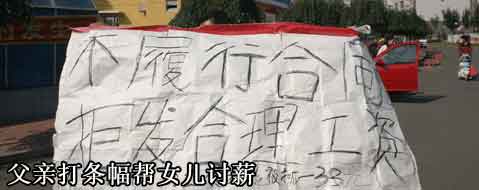 不履行合同
拒发合理工资
父亲打条幅帮女儿讨薪